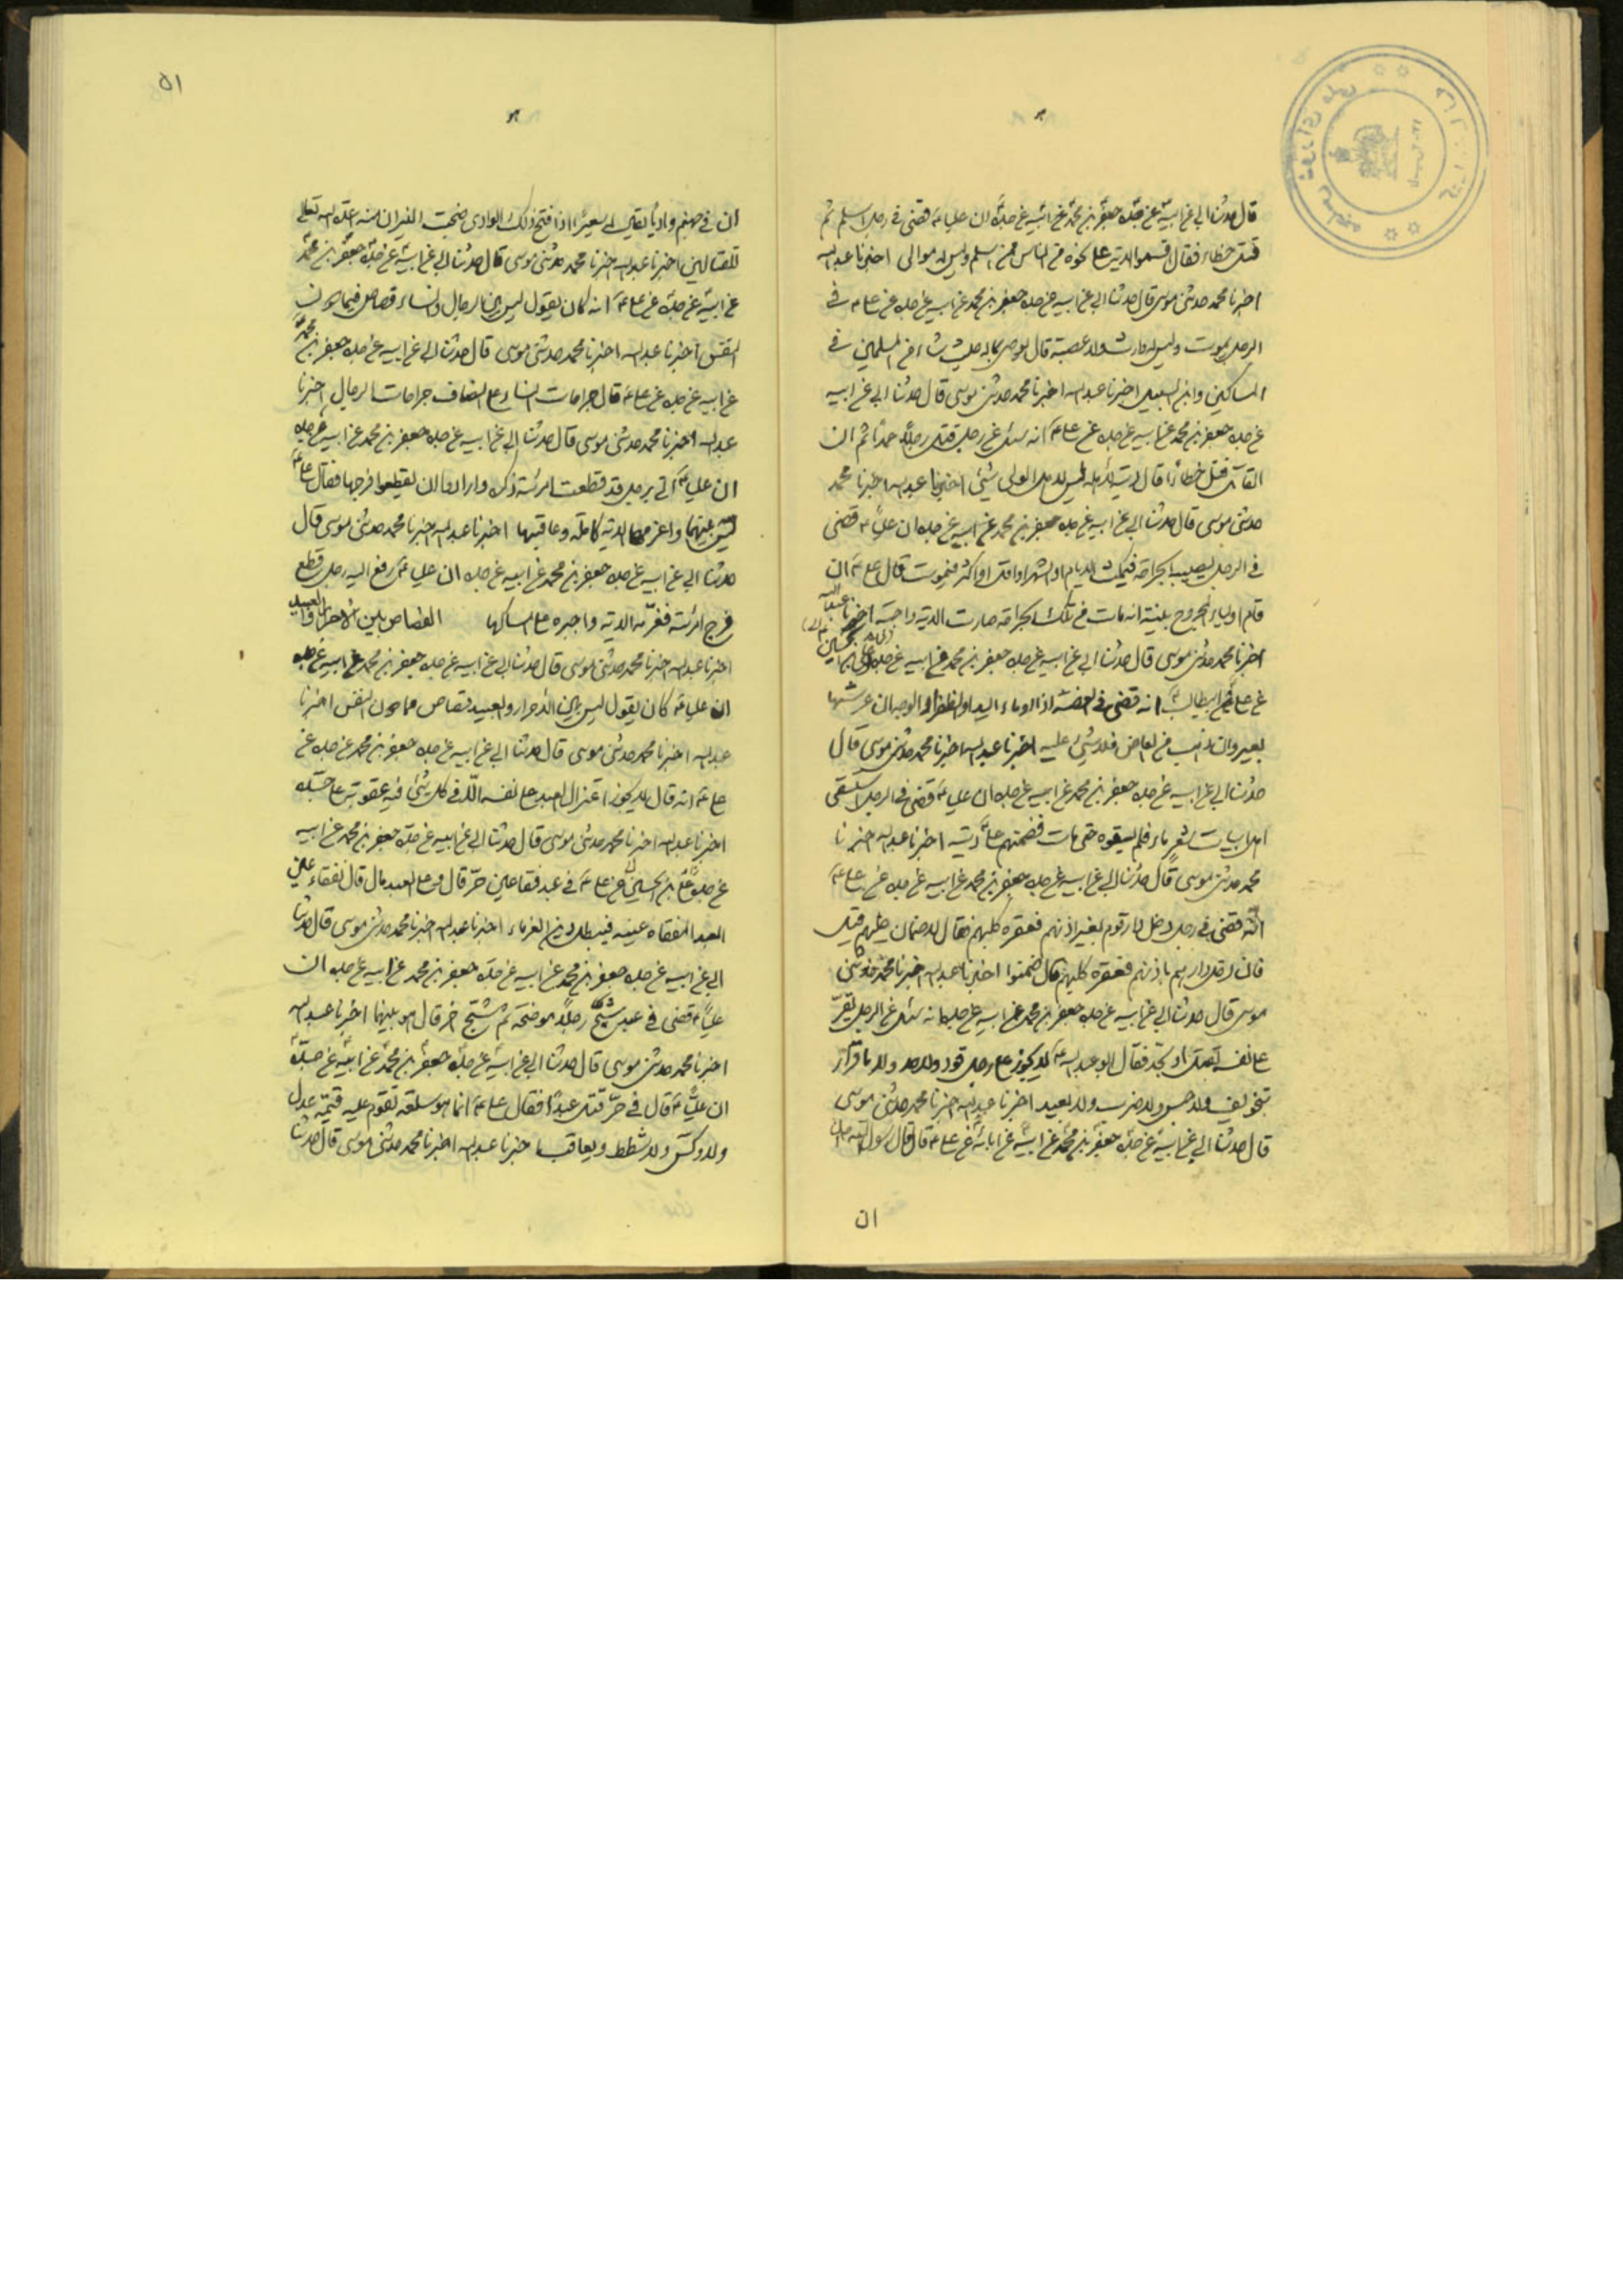 قال حدثنا ابي عن ابيه عن جده جعفر بن محمد عن ابيه عن جده ان عليا ع قضى في رجل اسلم ثم
قتل خطاء فقال اقسموا الدية على نحوه من الناس ممن اسلم وليس له موالى اخبرنا عبد الله
اخبرنا محمد حدثنى موسى قال حدثنا ابي عن ابيه عن جده جعفر بن محمد عن ابيه عن جده عن على ع في
الرجل يموت وليس له وارث ولا عصبة قال يوصى بماله حيث شاء من المسلمين في
المساكين وابن السبيل اخبرنا عبد الله اخبرنا محمد حدثنى موسى قال حدثنا ابي عن ابيه
عن جده جعفر بن محمد عن ابيه عن جده عن على ع انه سئل عن رجل قتل رجلاً عمداً ثم ان
القاتل قتل خطأ قال لاهله ليس لاهل الولى شيئى اخبرنا عبد الله اخبرنا محمد
حدثنى موسى قال حدثنا ابي عن ابيه عن جده جعفر بن محمد عن ابيه عن جده ان علياً ع قضى
في الرجل يصيب الجراحة فيمكث الايام او الشهر او اقل او اكثر فيموت قال على ع ان
قام اولياء المجروح بينة انه مات من تلك الجراحة صارت الدية واجبة اخبرنا عبد الله
اخبرنا محمد حدثنى موسى قال حدثنا ابي عن ابيه عن جده جعفر بن محمد عن ابيه عن جده على بن الحسين
عن على بن ابيطالب ع انه قضى في العضة اذا ادماء اليد او الظفر او الوجه ان عرشها
بعير وان ناب من العاض فلا شيئ عليه اخبرنا عبد الله اخبرنا محمد حدثنى موسى قال
حدثنا ابي عن ابيه عن جده جعفر بن محمد عن ابيه عن جده ان عليا ع قضى في الرجل استسقى
اهل ابيات شعر ماء فلم يسقوه حتى مات فضمنهم على ع ديته اخبرنا عبد الله اخبرنا
محمد حدثنى موسى قال حدثنا ابي عن ابيه عن جده جعفر بن محمد عن ابيه عن جده عن على ع
انه قضى في رجل دخل دار قوم بغير اذنهم فعقره كلبهم فقال لا ضمان عليهم قيل
فان دخل دارهم باذنهم فعقره كلبهم قال ضمنوا اخبرنا عبد الله اخبرنا محمد حدثنى
موسى قال حدثنا ابي عن ابيه عن جده جعفر بن محمد عن ابيه عن جده انه سئل عن الرجل يقرّ
على نفسه بقتل او بحد فقال ابو عبد الله ع لا يجوز على رجل قود ولا حد ولا باقرار
بتخويف ولا حبس ولا ضرب ولا بقيد اخبرنا عبد الله اخبرنا محمد حدثنى موسى
قال حدثنا ابي عن ابيه عن جده جعفر بن محمد عن ابيه عن ابائه عن على ع قال قال رسول الله
ان
٥١
ان في جهنم وادياً يقال له سعيراً اذا فتح ذلك الوادى ضجت النيران منه اعده الله تعالى
للقتالين اخبرنا عبد الله اخبرنا محمد حدثنى موسى قال حدثنا ابي عن ابيه عن جده جعفر بن محمد
عن ابيه عن جده عن على ع انه كان يقول ليس بين الرجال والنساء قصاص فيما دون
النفس اخبرنا عبد الله اخبرنا محمد حدثنى موسى قال حدثنا ابي عن ابيه عن جده جعفر بن محمد
عن ابيه عن جده عن على ع قال جراحات النساء على انصاف جراحات الرجال اخبرنا
عبد الله اخبرنا محمد حدثنى موسى قال حدثنا ابي عن ابيه عن جده جعفر بن محمد عن ابيه عن جده
ان عليا ع اتى برجل قد قطعت امرئته ذكره وارادوا ان يقطعوا فرجها فقال على ع
ليس بينهما واغرمها الدية كاملة وعاقبها اخبرنا عبد الله اخبرنا محمد حدثنى موسى قال
حدثنا ابي عن ابيه عن جده جعفر بن محمد عن ابيه عن جده ان عليا ع رفع اليه رجل قطع
فرج امرئته فغرّمه الدية واجبره على امساكها القصاص بين الاحرار والعبيد
اخبرنا عبد الله اخبرنا محمد حدثنى موسى قال حدثنا ابي عن ابيه عن جده جعفر بن محمد عن ابيه عن جده
ان عليا ع كان يقول ليس بين الاحرار والعبيد قصاص فما دون النفس اخبرنا
عبد الله اخبرنا محمد حدثنى موسى قال حدثنا ابي عن ابيه عن جده جعفر بن محمد عن جده عن
على ع انه قال لا يجوز العبد على نفسه الا في كل شئى فيه عقوبته على جسده
اخبرنا عبد الله اخبرنا محمد حدثنى موسى قال حدثنا ابي عن ابيه عن جده جعفر بن محمد عن ابيه
عن جده على بن الحسين عن على ع في عبد فقا عين حرّ قال وعلى العبد مال قال تفقاء عين
العبد المفقاه عينه فيبطل دين الغرماء اخبرنا عبد الله اخبرنا محمد حدثنى موسى قال حدثنا
ابي عن ابيه عن جده جعفر بن محمد عن ابيه عن جده جعفر بن محمد عن ابيه عن جده ان
علياً ع قضى في عبد شجّ رجلاً موضحة ثم شجّ اخر قال هو بينهما اخبرنا عبد الله
اخبرنا محمد حدثنى موسى قال حدثنا ابي عن ابيه عن جده جعفر بن محمد عن ابيه عن جده
ان علياً ع قال في حرّ قتل عبداً فقال على ع انما هو سلعة تقوم عليه قيمة عدل
ولا وكس ولا شطط ويعاقب اخبرنا عبد الله اخبرنا محمد حدثنى موسى قال حدثنا